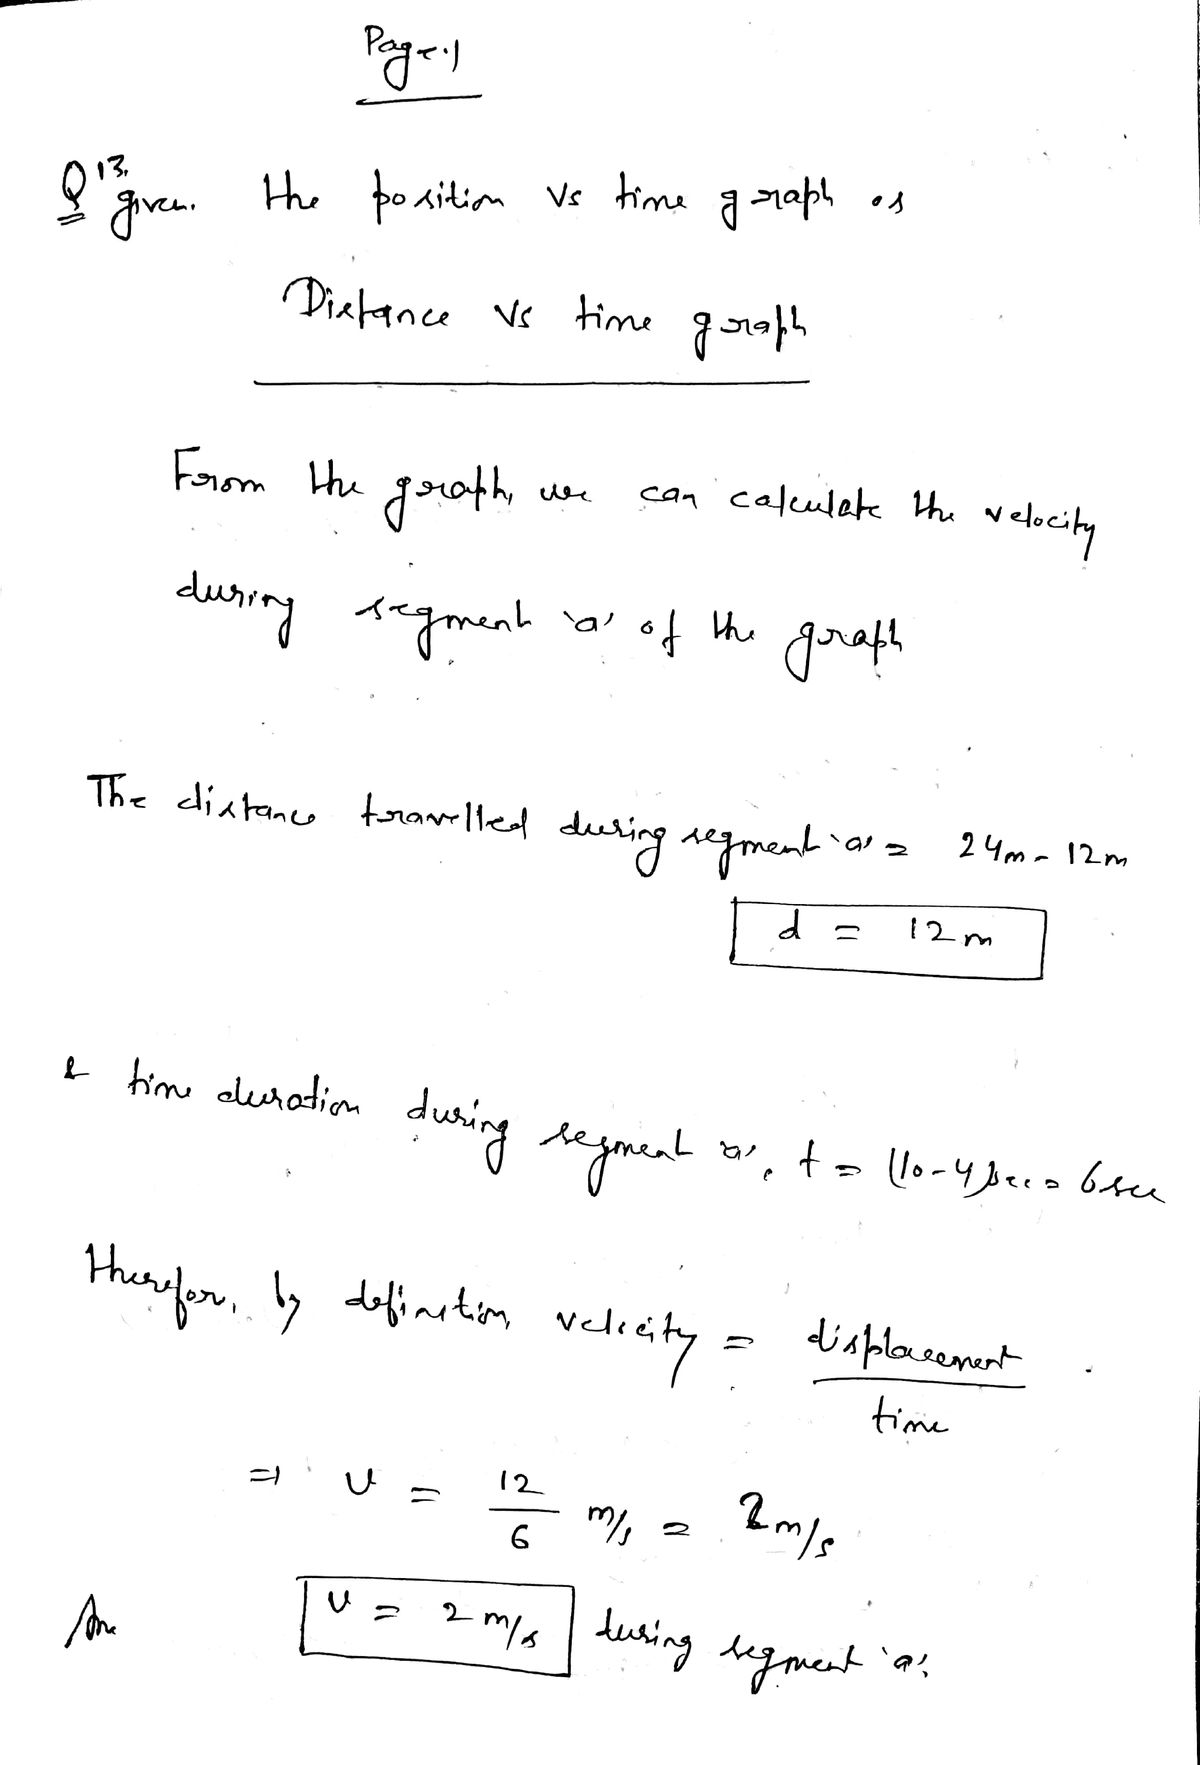 Page.1
Q 13. given. the position vs time graph is
Distance vs time graph
From the graph, we can calculate the velocity
during segment 'a' of the graph
The distance travelled during segment 'a' = 24m - 12m
d = 12m
& time duration during segment 'a', t = (10-4)sec = 6sec
therefor, by definition, velocity = displacement
time
⇒ v = 12/6 m/s = 2m/s
Ans v = 2m/s during segment 'a'.